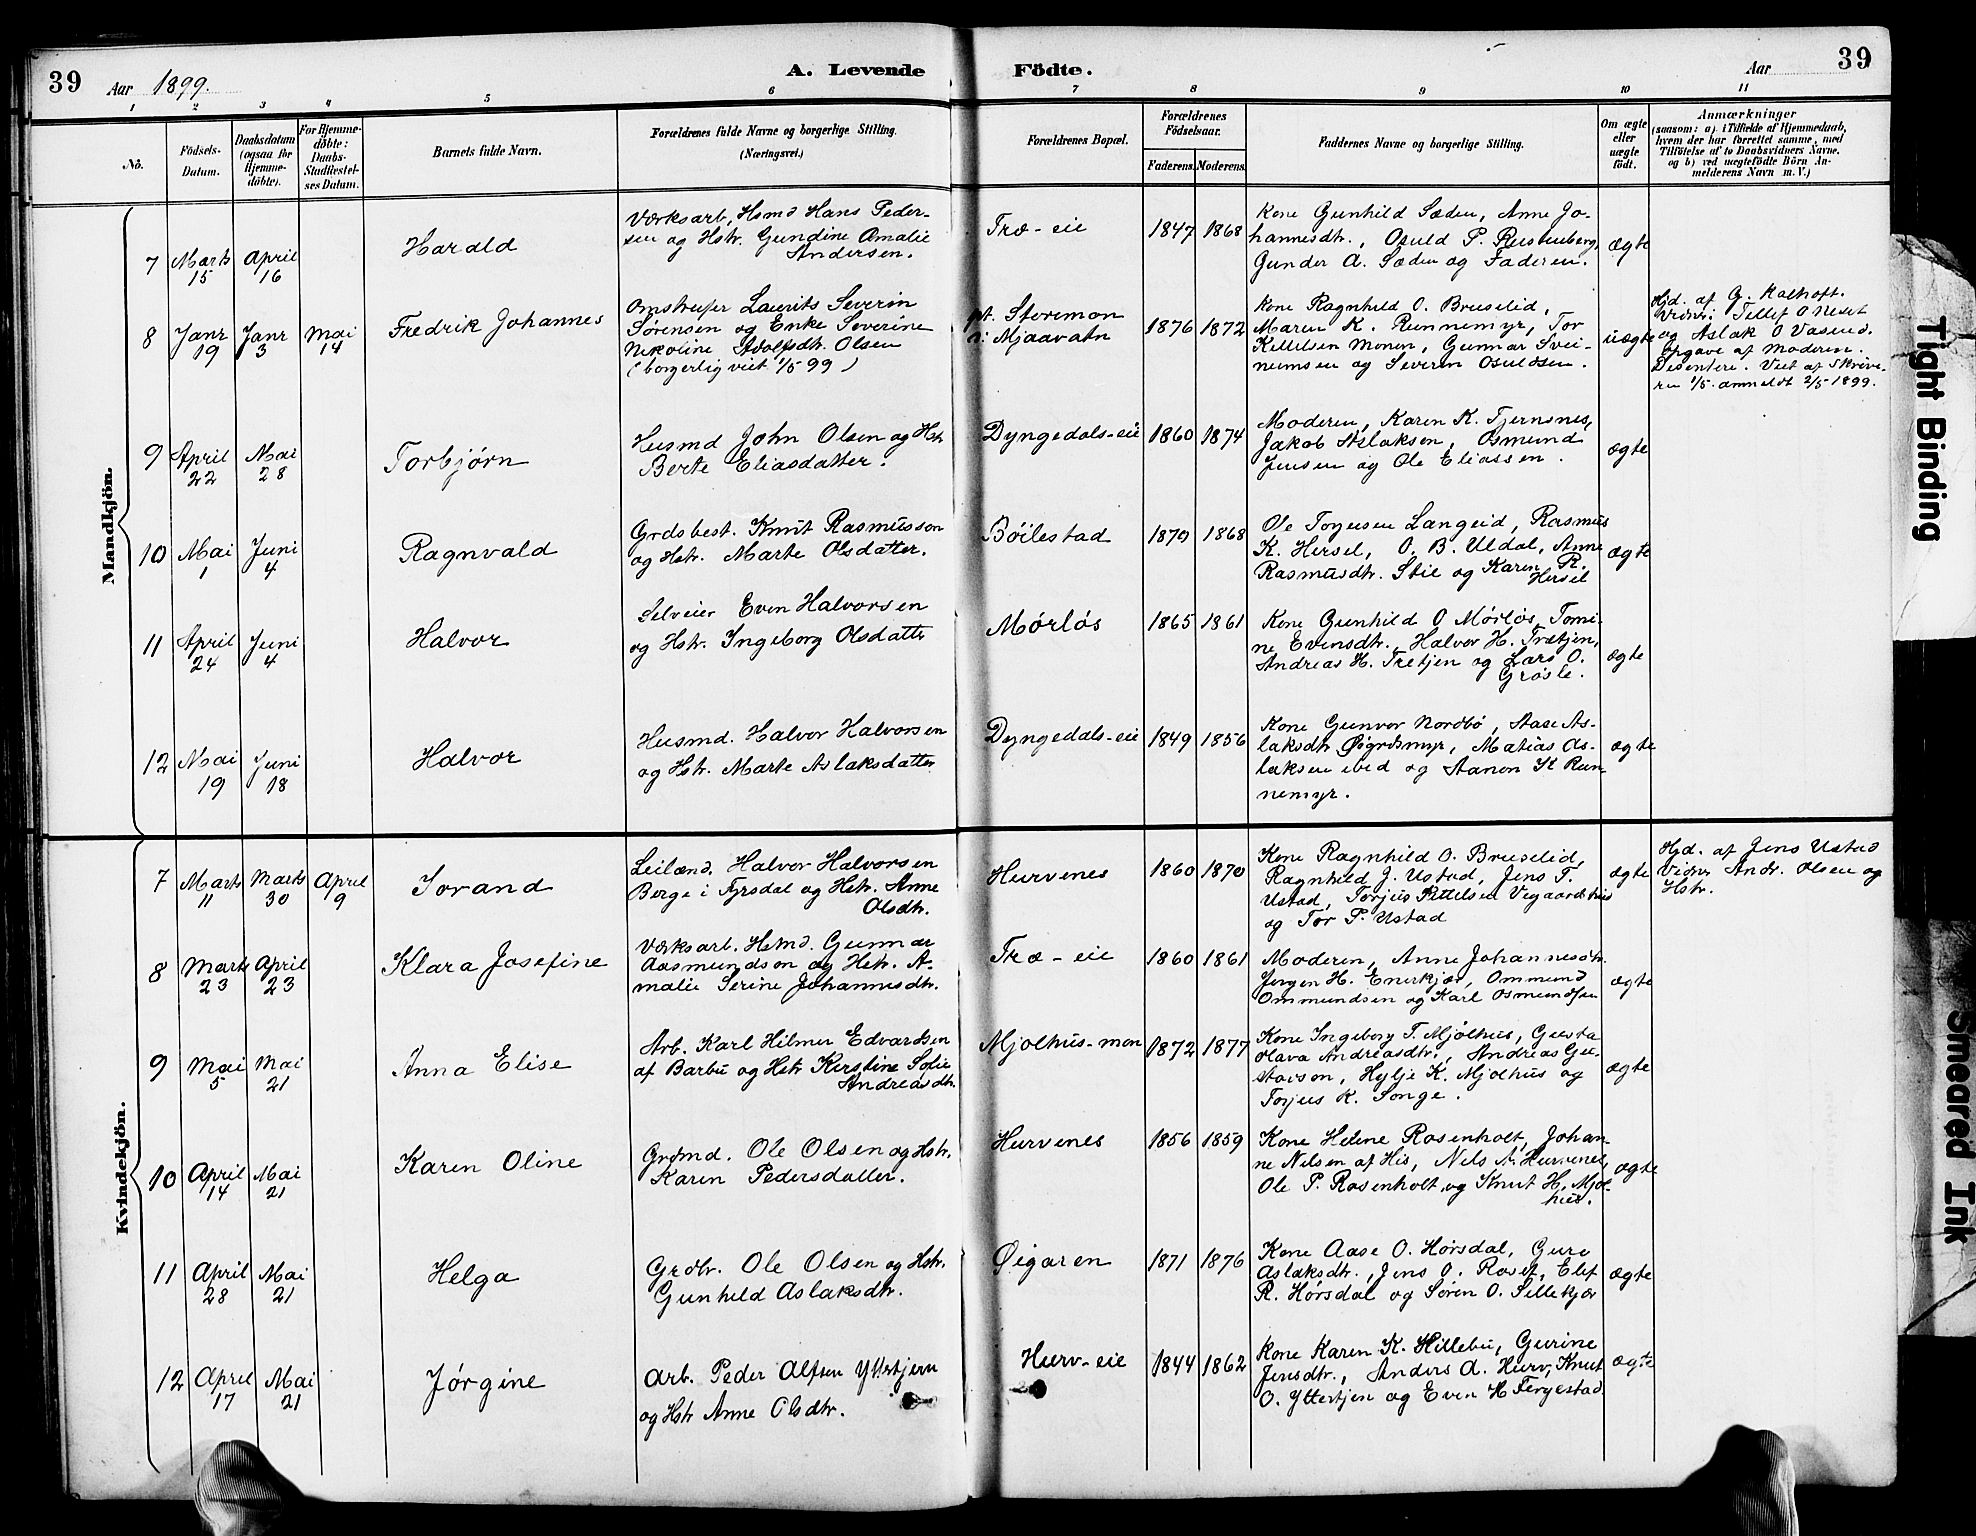 39
Aar 1899.
A. Levende
Födte.
Aar
39
1 2 3 4 5 6 7 8 9 10 11
No.
Födsels-
Datum.
Daabsdatum
(ogsaa for
Hjemme-
döbte).
For Hjemme-
døbte:
Daabs-
Stadfæstel-
ses Datum.
Barnets fulde Navn.
Forældrenes fulde Navne og borgerlige Stilling.
(Næringsvei.)
Forældrenes Bopæl.
Forældrenes
Födselsaar.
Faderens.
Moderens.
Faddernes Navne og borgerlige Stilling.
Om ægte
eller
uægte
födt.
Anmærkninger
(saasom: a) i Tilfælde af Hjemmedaab,
hvem der har forrettet samme, med
Tilföielse af to Daabsvidners Navne,
og b) ved uægtefödte Börn An-
melderens Navn m. V.)
Mandkjön.
7
Marts
15
April
16
Harald
Værksarb, Hsmd Hans Peder-
sen og Hstr. Gundine Amalie
Andersen.
Træ-eie
1847
1868
Kone Gunhild Sæden, Anne Jo-
hannesdtr., Osuld P. Rustenberg,
Gunder A. Sæden og Faderen.
ægte
8
Janr
19
Janr
3
Mai
14
Fredrik Johannes
Omstreifer Laurits Severin
Sørensen og Enke Severine
Nikoline Adolfsdtr. Olsen
(borgerlig viet 1/5 99)
pt. Storemon
i Mjaavatn
1876
1872
Kone Ragnhild O. Bruselid,
Maren K. Runnemyr, Tor
Kittelsen Monen, Gunnar Svei-
numsen og Severin Osuldsen.
uægte
Hjd. af G. Kalhoft.
Vidner: Tellef O Neset
og Aslak O Vasend.
Opgave af Moderen.
Desentere. Viet af Skrive-
ren 1/5. anmeldt 2/5 1899.
9
April
22
Mai
28
Torbjørn
Husmd John Olsen og Hstr
Berte Eliasdatter.
Dyngedals-eie
1860
1874
Moderen, Karen K. Tjernsnes,
Jakob Aslaksen, Osmund
Jensen og Ole Eliassen.
ægte
10
Mai
1
Juni
4
Ragnvald
Grdsbest. Knut Rasmusson
og Hstr. Marte Olsdatter.
Bøilestad
1870
1868
Ole Torjusen Langeid, Rasmus
K. Hersel, O. B. Uldal, Anne
Rasmusdtr. Stie og Karen R.
Hersel
ægte
11
April
24
Juni
4
Halvor
Selveier Even Halvorsen
og Hstr. Ingeborg Olsdatter
Mørløs
1865
1861
Kone Gunhild O Mørløs, Tomi-
ne Evensdtr., Halvor H. Tretjen,
Andreas H. Tretjen og Lars O.
Grøsle.
ægte
12
Mai
19
Juni
18
Halvor
Husmd. Halvor Halvorsen
og Hstr. Marte Aslaksdatter
Dyngedals-eie
1849
1856
Kone Gunvor Nordbö, Aase As-
laksdtr Øigrdsmyr, Matias As-
laksen ibid og Aanon K Run-
nemyr.
ægte
Kvindekjön.
7
Marts
11
Marts
30
April
9
Jorand
Leilænd. Halvor Halvorsen
Berge i Fyrsdal og Hstr. Anne
Olsdtr.
Hurvenes
1860
1870
Kone Ragnhild O. Bruselid,
Ragnhild J. Ustad, Jens T.
Ustad, Torjus Kittelsen Vegaardshus
og Tor P. Ustad
ægte
Hjd. af Jens Ustad
Vidner Andr. Olsen og
Hstr.
8
Marts
23
April
23
Klara Josefine
Værksarb. Hsmd. Gunnar
Aasmundson og Hstr. A-
malie Serine Johannesdtr.
Træ-eie
1860
1861
Moderen, Anne Johannesdtr.
Jørgen H. Enerkjær, Ommund
Ommundsen og Karl Osmundsen
ægte
9
Mai
5
Mai
21
Anna Elise
Arb. Karl Hilmer Edvardsen
af Barbu og Hstr Kirstine Sofie
Andreasdtr.
Mjolhus-mon
1872
1877
Kone Ingeborg T. Mjølhus, Gusta
Olava Andreasdtr., Andreas Gu-
stavson, Hylje K. Mjolhus og
Torjus K. Songe.
ægte
10
April
14
Mai
21
Karen Oline
Grdmd. Ole Olsen og Hstr.
Karen Pedersdatter.
Hurvenes
1856
1859
Kone Helene Rosenholt, Johan-
ne Nilsen af His, Nels A. Hurvenes,
Ole P. Rosenholt og Knut H. Mjol-
hus.
ægte
11
April
28
Mai
21
Helga
Grdbr. Ole Olsen og Hstr.
Gunhild Aslaksdtr.
Øigaren
1871
1876
Kone Aase O. Hørsdal, Guro
Aslaksdtr., Jens O. Roset, Elef
R. Hørsdal og Søren O. Sillekjær
ægte
12
April
17
Mai
21
Jørgine
Arb. Peder Alfsen Yttertjern
og Hstr Anne Olsdtr.
Hurv-eie
1844
1862
Kone Karen K. Hillebu, Gurine
Jensdtr., Anders A. Hurv, Knut
O. Yttertjen og Even H Fergestad
ægte
Tight Binding
Smeared Ink